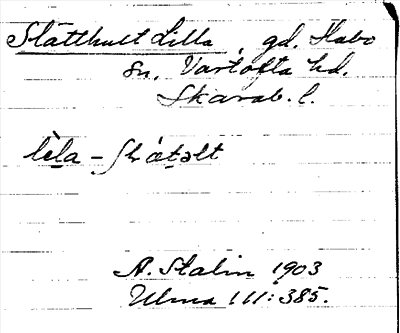 Slätthult Lilla, gd. Habo
sn. Vartofta hd.
Skarab. l.
lìla-
A. Stalin 1903
Ulma 111:385.